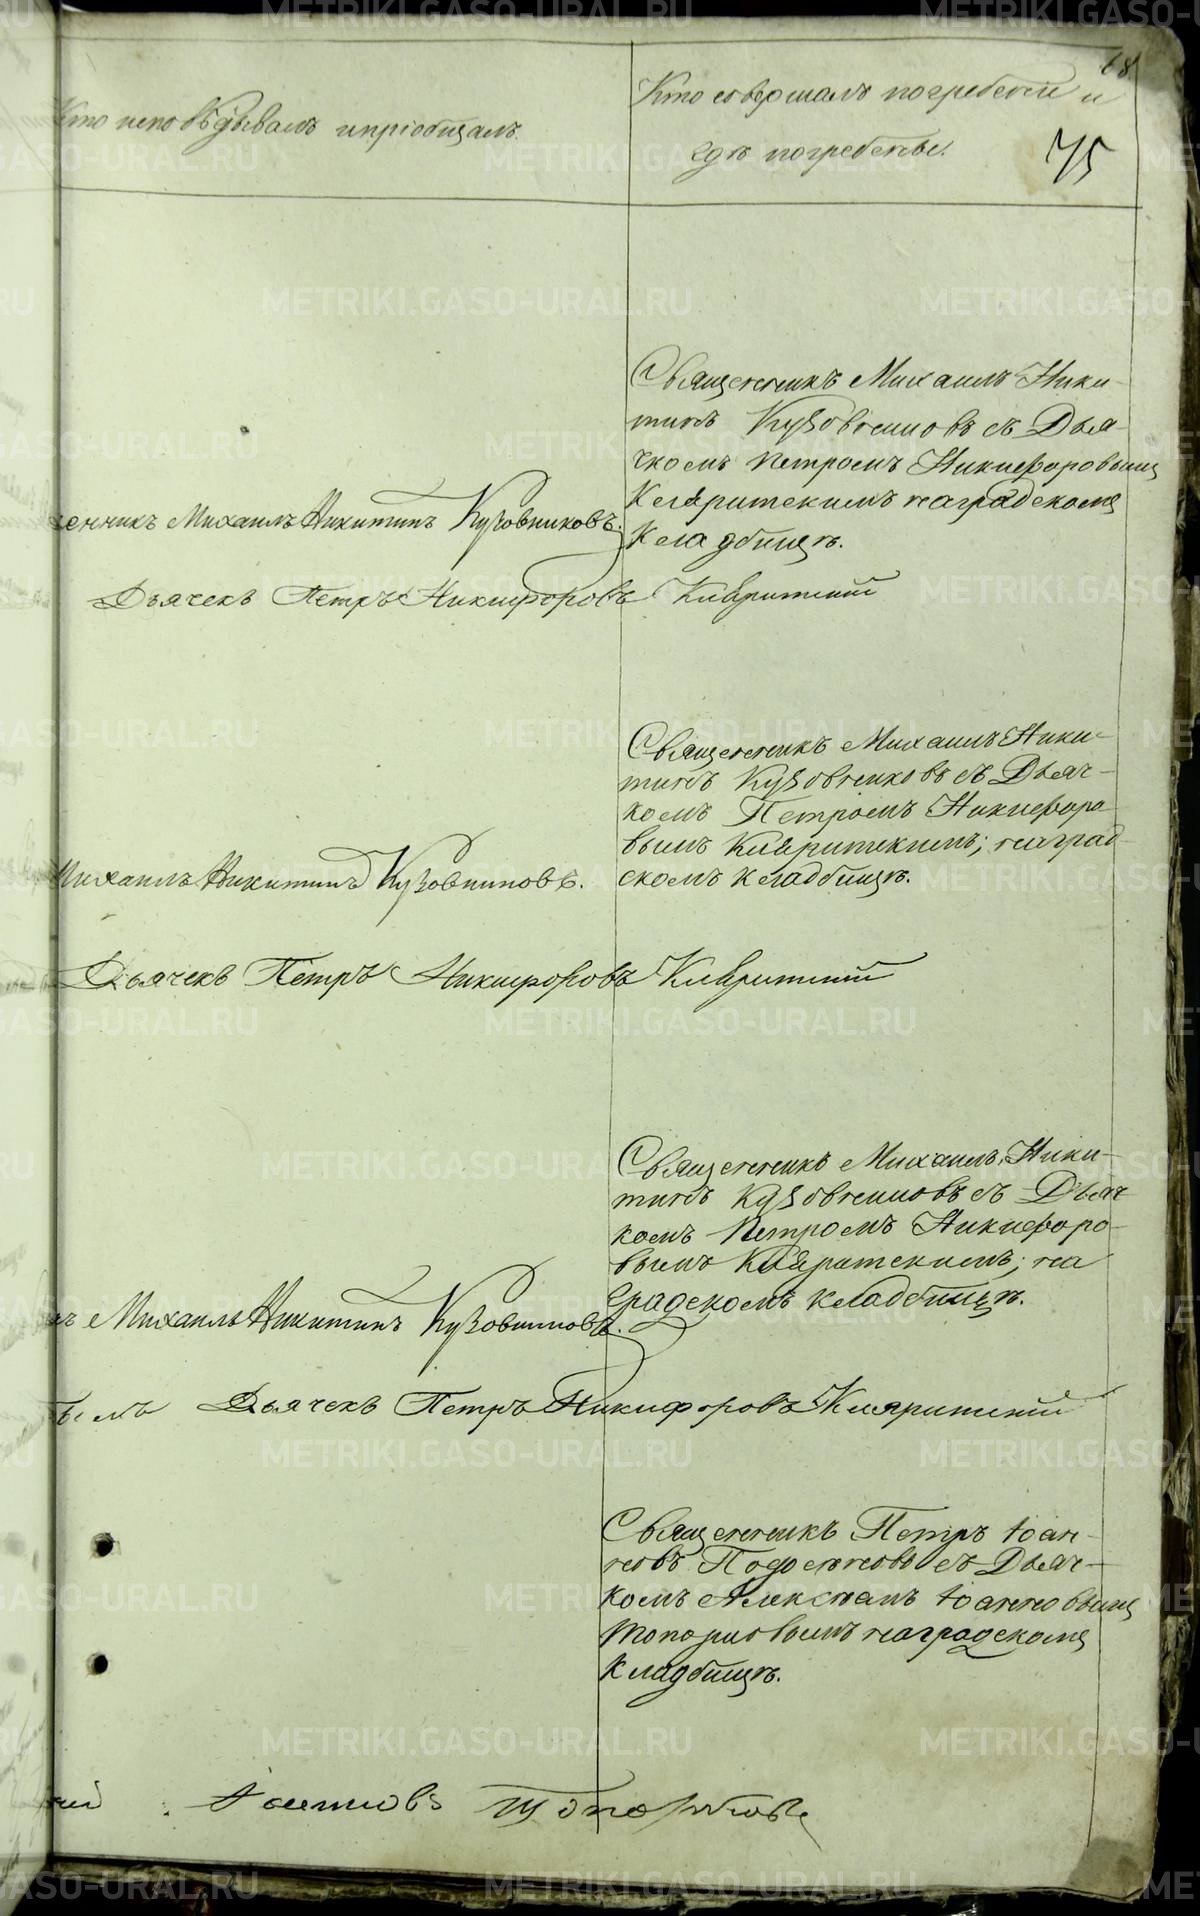 68
Кто исповѣдывалъ ипріобщалъ.
Кто совершалъ погребеніе и
гдѣ погребены.
75
Священникъ Михаилъ Ники-
тинъ Кузовниковъ съ Дья-
чкомъ Петромъ Никифоровымъ
наградскомъ
Кладбищѣ.
енникъ Михаилъ Никитинъ Кузовниковъ.
Дьячекъ Петръ Никифоровъ
Священникъ Михаилъ Ники-
тинъ Кузовниковъ съ Дьяч-
комъ Петромъ Никифоро
вымъ наград-
скомъ кладбищѣ.
Михаилъ Никитинъ Кузовниковъ.
Дьячекъ Петръ Никифоровъ
Священникъ Михаилъ Ники-
тинъ Кузовниковъ съ Дьяч
комъ Петромъ Никифоро-
вымъ на
градскомъ кладбищѣ.
Михаилъ Никитинъ Кузовниковъ.
Дьячекъ Петръ Никифоровъ
Священникъ Петръ Іоан-
новъ съ Дьяч-
комъ Іоанновымъ
Топорковымъ наградскомъ
кладбищѣ.
Топорковъ
METRIKI.GASO-URAL.RU